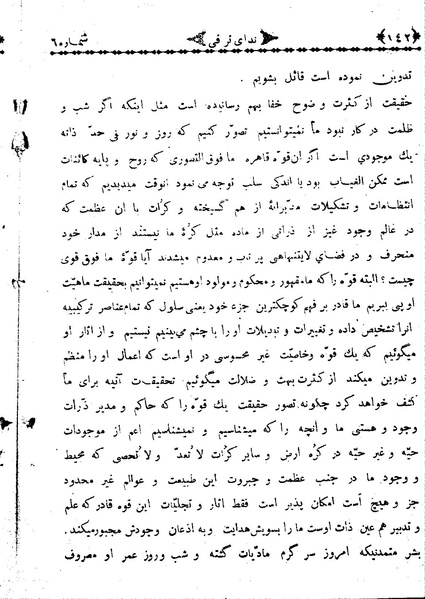 ﴿۱٤۲﴾ ندای ترقی شماره ٦
تدوین نموده است قائل بشویم .
حقیقت از کثرت و ضوح خفا بهم رسانیده است مثل اینکه اگر شب و
ظلمت در کار نبود ما نمیتوانستیم تصور کنیم که روز و نور فی حد ذاته
یك موجودی است اگر ان قوه قاهره ما فوق التصوری که روح و پایه کائنات
است ممکن الغیاب بود یا اندکی سلب توجه می نمود انوقت میدیدیم که تمام
انتظامات و تشکیلات مدبرانهٔ از هم گسیخته و کرات با ان عظمت که
در عالم وجود غیر از ذراتی از ماده مثل کرهٔ ما نیستند از مدار خود
منحرف و در فضای لایتنهاهی پرتاب و معدوم میشدند آیا قوهٔ ما فوق قوی
چیست ؟ البته قوهٔ را که ما مقهور و محکوم و مولود اوهستیم نمیتوانیم بحقیقت ماهیت
او پی ببریم ما قادر بر فهم کوچکترین جزء خود یعنی سلول که تمام عناصر ترکیبیه
انرا تشخیص داده و تغییرات و تبدیلات او را با چشم می‌بینیم نیستیم و از آثار او
میگوئیم که یك قوه و خاصیت غیر محسوسی در او است که اعمال او را منظم
و تدوین میکند از کثرت بهت و ضلالت میگوئیم تحقیقت آتیه برای ما
کشف خواهد کرد چگونه تصور حقیقت یك قوهٔ را که حاکم و مدیر ذرات
وجود و هستی ما و آنچه را که میشناسیم و نمیشناسیم اعم از موجودات
حیّه و غیر حیّه در کره ارض و سایر کرات لاتعد و لاتحصی که محیط
و وجود ما در جنب عظمت و جبروت این طبیعت و عوالم غیر محدود
جز و هیچ است امکان پذیر است فقط اثار و تجلیات این قوه قادر که علم
و تدبیر هم عین ذات اوست ما را بسویش هدایت و به اذعان وجودش مجبور میکند .
بشر متمدنیکه امروز سر گرم مادیات گشته و شب و روز عمر او مصروف